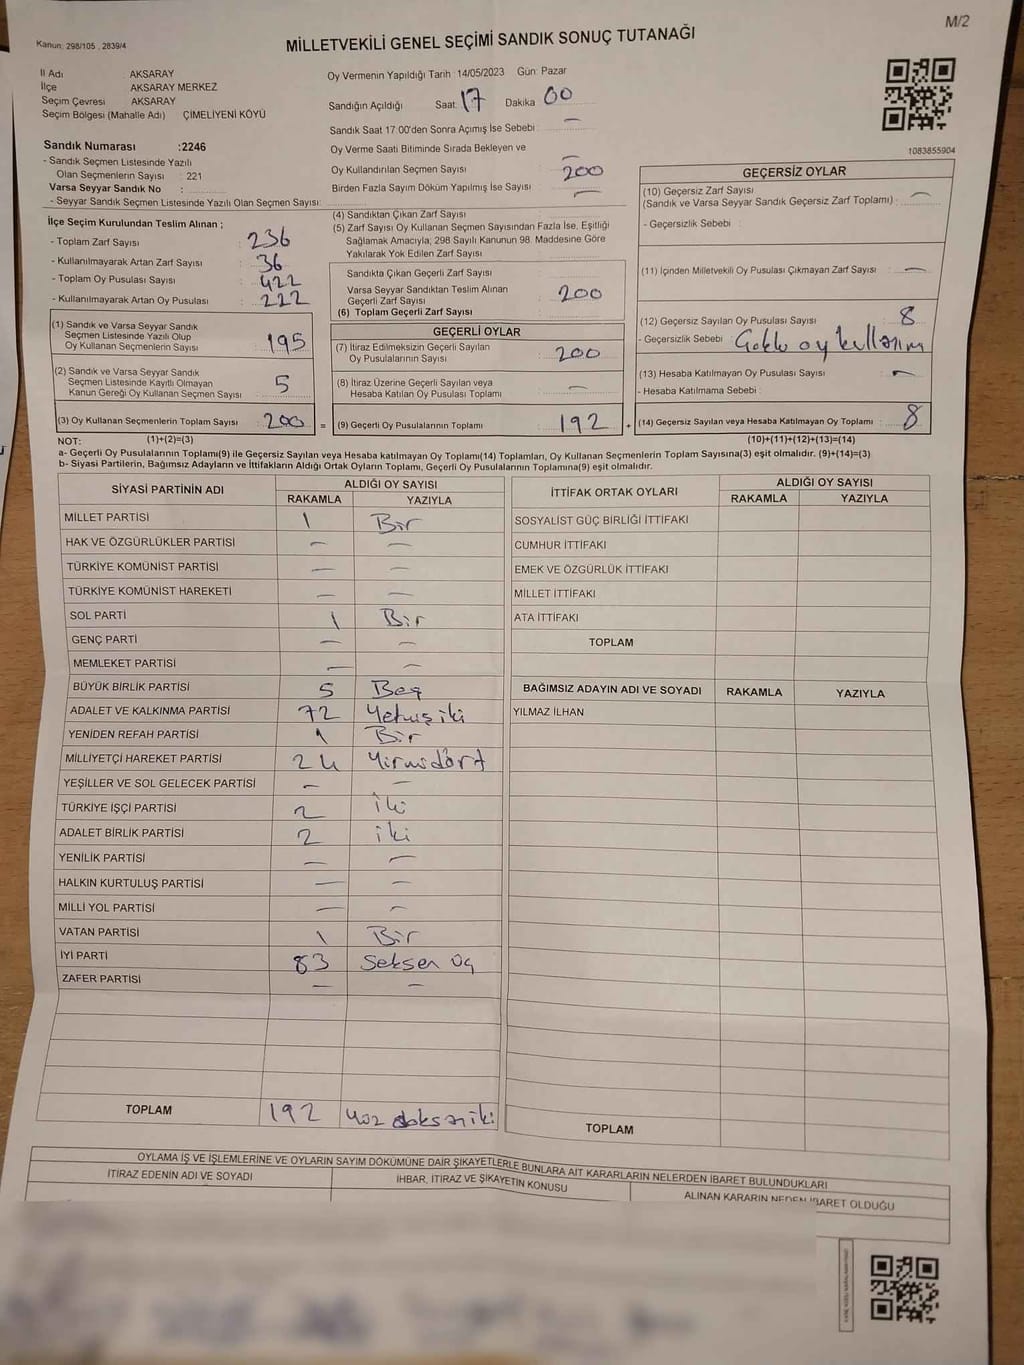 M/2
Kanun: 298/105 , 2839/4
MİLLETVEKİLİ GENEL SEÇİMİ SANDIK SONUÇ TUTANAĞI
İl Adı AKSARAY
İlçe AKSARAY MERKEZ
Seçim Çevresi AKSARAY
Seçim Bölgesi (Mahalle Adı) ÇİMELİYENİ KÖYÜ
Sandık Numarası :2246
- Sandık Seçmen Listesinde Yazılı
Olan Seçmenlerin Sayısı : 221
Varsa Seyyar Sandık No :
- Seyyar Sandık Seçmen Listesinde Yazılı Olan Seçmen Sayısı:
Oy Vermenin Yapıldığı Tarih :14/05/2023 Gün: Pazar
Sandığın Açıldığı Saat: 17 Dakika 00
Sandık Saat 17:00'den Sonra Açımış İse Sebebi : —
Oy Verme Saati Bitiminde Sırada Bekleyen ve
Oy Kullandırılan Seçmen Sayısı — 200
Birden Fazla Sayım Döküm Yapılmış İse Sayısı : —
1083855904
İlçe Seçim Kurulundan Teslim Alınan ;
- Toplam Zarf Sayısı : 236
- Kullanılmayarak Artan Zarf Sayısı : 36
- Toplam Oy Pusulası Sayısı : 422
- Kullanılmayarak Artan Oy Pusulası : 222
(1) Sandık ve Varsa Seyyar Sandık
Seçmen Listesinde Yazılı Olup
Oy Kullanan Seçmenlerin Sayısı : 195
(2) Sandık ve Varsa Seyyar Sandık
Seçmen Listesinde Kayıtlı Olmayan
Kanun Gereği Oy Kullanan Seçmen Sayısı : 5
(3) Oy Kullanan Seçmenlerin Toplam Sayısı : 200 =
(4) Sandıktan Çıkan Zarf Sayısı :
(5) Zarf Sayısı Oy Kullanan Seçmen Sayısından Fazla İse, Eşitliği
Sağlamak Amacıyla; 298 Sayılı Kanunun 98. Maddesine Göre
Yakılarak Yok Edilen Zarf Sayısı :
Sandıkta Çıkan Geçerli Zarf Sayısı :
Varsa Seyyar Sandıktan Teslim Alınan
Geçerli Zarf Sayısı : 200
(6) Toplam Geçerli Zarf Sayısı :
GEÇERLİ OYLAR
(7) İtiraz Edilmeksizin Geçerli Sayılan
Oy Pusulalarının Sayısı : 200
(8) İtiraz Üzerine Geçerli Sayılan veya
Hesaba Katılan Oy Pusulası Toplamı : —
(9) Geçerli Oy Pusulalarının Toplamı : 192 +
GEÇERSİZ OYLAR
(10) Geçersiz Zarf Sayısı
(Sandık ve Varsa Seyyar Sandık Geçersiz Zarf Toplamı) : —
- Geçersizlik Sebebi :
(11) İçinden Milletvekili Oy Pusulası Çıkmayan Zarf Sayısı : —
(12) Geçersiz Sayılan Oy Pusulası Sayısı : 8
- Geçersizlik Sebebi : oy
(13) Hesaba Katılmayan Oy Pusulası Sayısı : —
- Hesaba Katılmama Sebebi :
(14) Geçersiz Sayılan veya Hesaba Katılmayan Oy Toplamı : 8
NOT: (1)+(2)=(3) (10)+(11)+(12)+(13)=(14)
a- Geçerli Oy Pusulasının Toplamı(9) ile Geçersiz Sayılan veya Hesaba katılmayan Oy Toplamı(14) Toplamları, Oy Kullanan Seçmenlerin Toplam Sayısına(3) eşit olmalıdır. (9)+(14)=(3)
b- Siyasi Partilerin, Bağımsız Adayların ve İttifakların Aldığı Ortak Oyların Toplamı, Geçerli Oy Pusulalarının Toplamına(9) eşit olmalıdır.
SİYASİ PARTİNİN ADI ALDIĞI OY SAYISI
RAKAMLA YAZIYLA
MİLLET PARTİSİ 1 Bir
HAK VE ÖZGÜRLÜKLER PARTİSİ — —
TÜRKİYE KOMÜNİST PARTİSİ — —
TÜRKİYE KOMÜNİST HAREKETİ — —
SOL PARTİ 1 Bir
GENÇ PARTİ — —
MEMLEKET PARTİSİ — —
BÜYÜK BİRLİK PARTİSİ 5 Beş
ADALET VE KALKINMA PARTİSİ 72 Yetmiş iki
YENİDEN REFAH PARTİSİ 1 Bir
MİLLİYETÇİ HAREKET PARTİSİ 24 Yirmidört
YEŞİLLER VE SOL GELECEK PARTİSİ — —
TÜRKİYE İŞÇİ PARTİSİ 2 İki
ADALET BİRLİK PARTİSİ 2 iki
YENİLİK PARTİSİ — —
HALKIN KURTULUŞ PARTİSİ — —
MİLLİ YOL PARTİSİ — —
VATAN PARTİSİ 1 Bir
İYİ PARTİ 83 Seksen üç
ZAFER PARTİSİ — —
TOPLAM 192 Yüz doksan iki
İTTİFAK ORTAK OYLARI ALDIĞI OY SAYISI
RAKAMLA YAZIYLA
SOSYALİST GÜÇ BİRLİĞİ İTTİFAKI
CUMHUR İTTİFAKI
EMEK VE ÖZGÜRLÜK İTTİFAKI
MİLLET İTTİFAKI
ATA İTTİFAKI
TOPLAM
BAĞIMSIZ ADAYIN ADI VE SOYADI RAKAMLA YAZIYLA
YILMAZ İLHAN
TOPLAM
OYLAMA İŞ VE İŞLEMLERİNE VE OYLARIN SAYIM DÖKÜMÜNE DAİR ŞİKAYETLERLE BUNLARA AİT KARARLARIN NELERDEN İBARET BULUNDUKLARI
İTİRAZ EDENİN ADI VE SOYADI İHBAR, İTİRAZ VE ŞİKAYETİN KONUSU ALINAN KARARIN NEDEN İBARET OLDUĞU